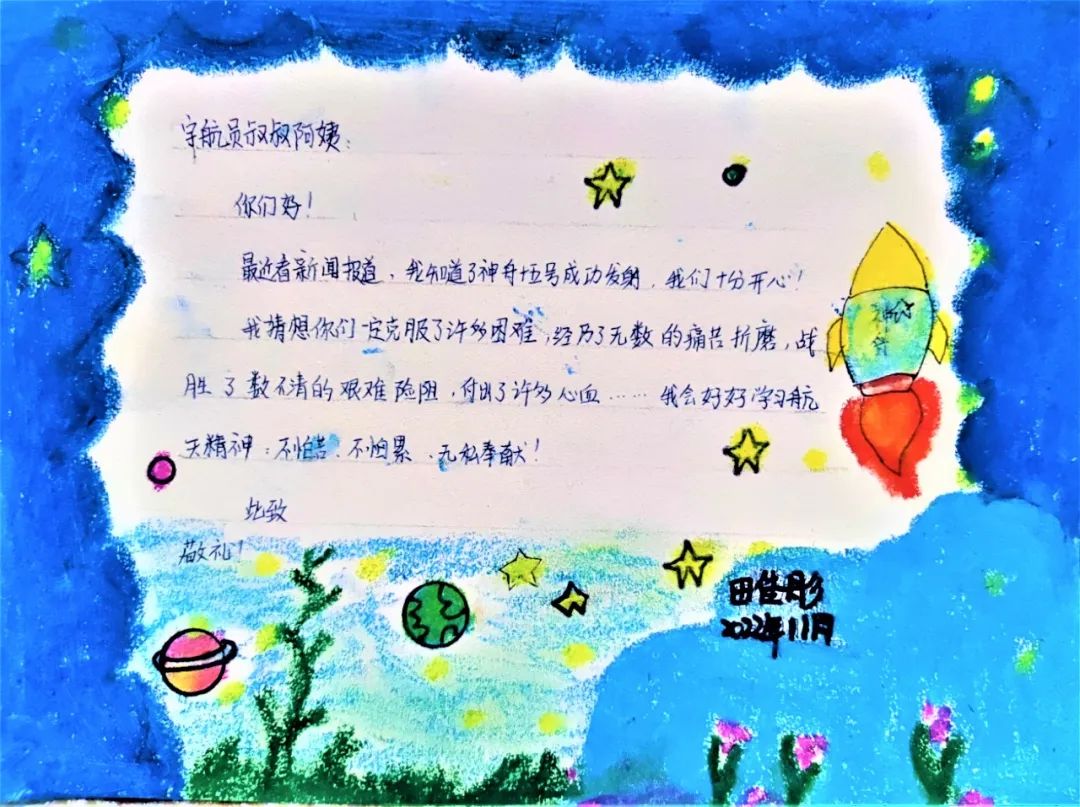 宇航员叔叔阿姨：
你们好！
最近看新闻报道，我知道了神舟十五号成功发射，我们十分开心！
我猜想你们一定克服了许多困难，经历了无数的痛苦折磨，战
胜了数不清的艰难险阻，付出了许多心血……我会好好学习航
天精神：不怕苦、不怕累、无私奉献！
此致
敬礼！
神舟
田佳彤
2022年11月